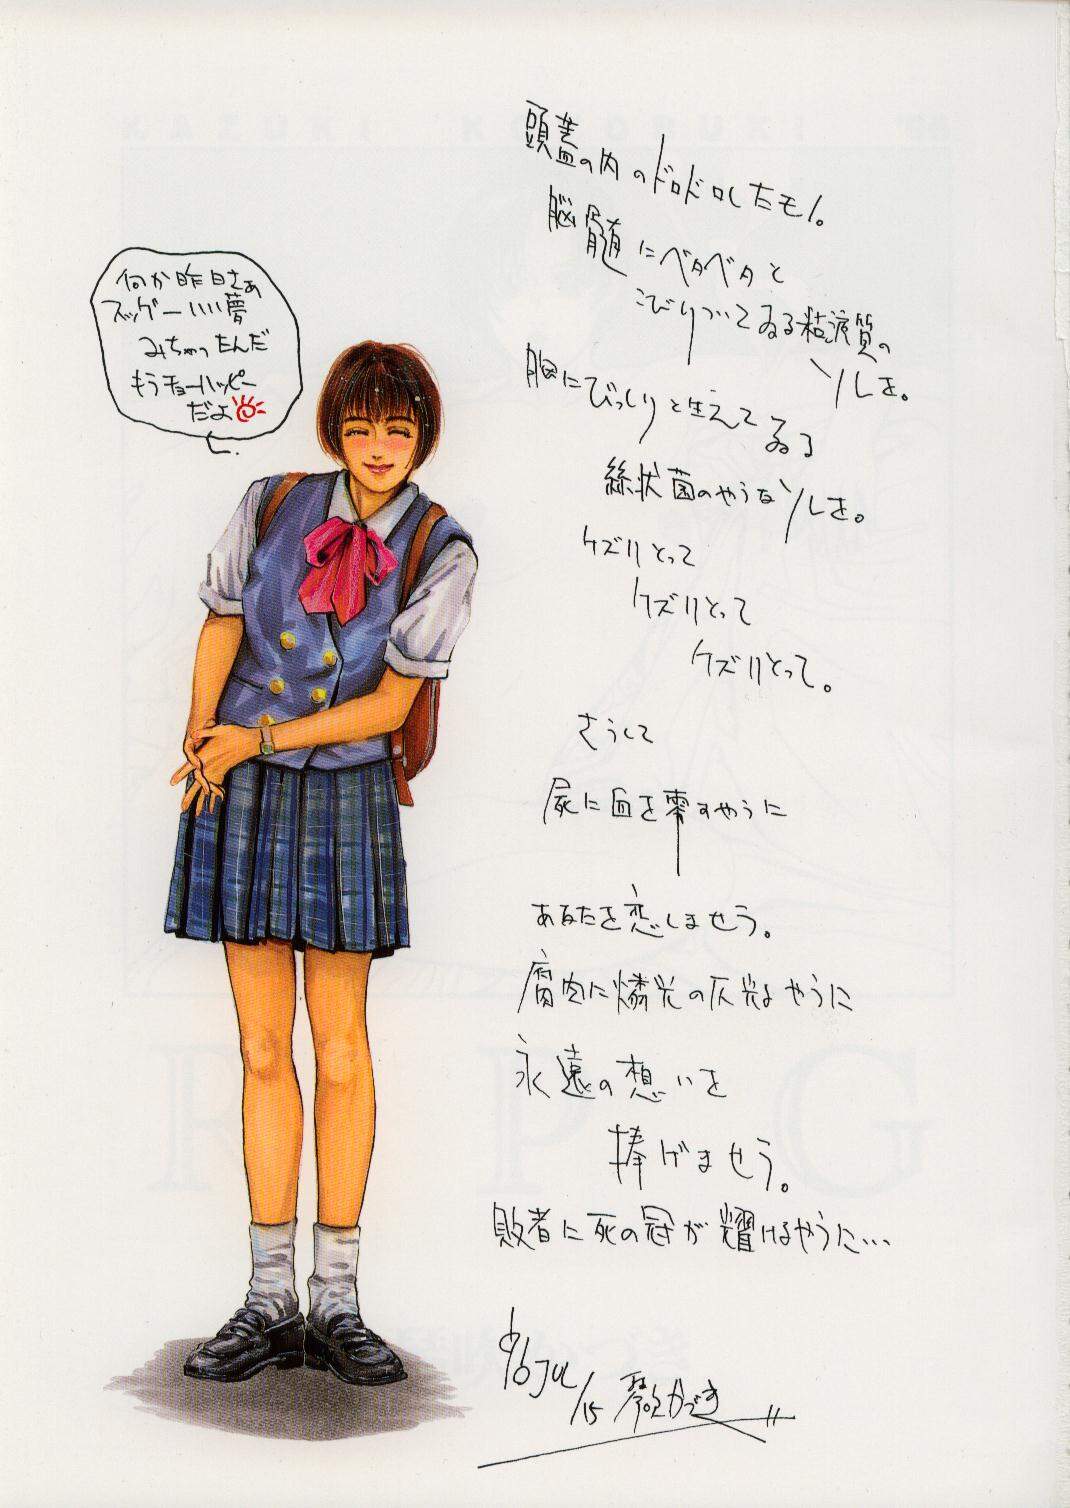 何か昨日さぁ
スッゲーいい夢
みちゃったんだ
もうチョーハッピー
だよ
頭蓋の内のドロドロしたモノ。
脳髄にベタベタと
こびりついてゐる粘液質の
ソレを。
胸にびっしりと生えてゐる
絲状菌のやうなソレを。
ケズリとって
ケズリとって
ケズリとって。
さうして
屍に血を零すやうに
あなたを恋しませう。
腐肉に燐光の仄光るやうに
永遠の想いを
捧げませう。
敗者に死の冠が耀けるやうに…
JUL
/15
かづき